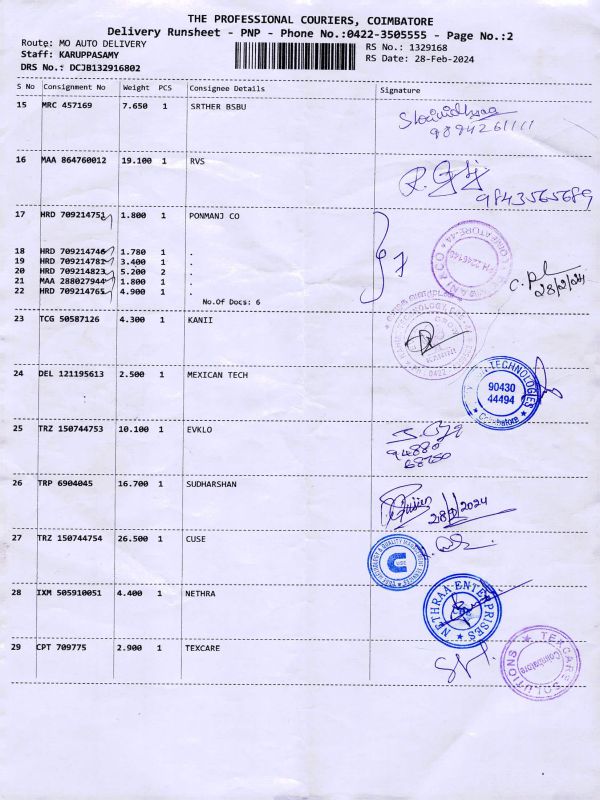 THE PROFESSIONAL COURIERS, COIMBATORE
Delivery Runsheet - PNP - Phone No.:0422-3505555 - Page No.:2
Route: MO AUTO DELIVERY
RS No.: 1329168
Staff: KARUPPASAMY
RS Date: 28-Feb-2024
DRS No.: DCJB132916802
S No Consignment No Weight PCS Consignee Details Signature
15 MRC 457169 7.650 1 SRTHER BSBU
9894261111
16 MAA 864760012 19.100 1 RVS
9843565689
17 HRD 709214751 1.800 1 PONMANJ CO
18 HRD 709214746 1.780 1 .
19 HRD 709214781 3.400 1 .
20 HRD 709214823 5.200 2 .
21 MAA 288027944 1.800 1 .
22 HRD 709214765 4.900 1 .
28/2/24
No.Of Docs: 6
23 TCG 50587126 4.300 1 KANII
24 DEL 121195613 2.500 1 MEXICAN TECH
TECHNOLOGIES
90430
44494
Coimbatore
25 TRZ 150744753 10.100 1 EVKLO
94880
68750
26 TRP 6904045 16.700 1 SUDHARSHAN
28/2/2024
27 TRZ 150744754 26.500 1 CUSE
28 IXM 505910051 4.400 1 NETHRA
NETHRAA ENTERPRISES
29 CPT 709775 2.900 1 TEXCARE
TEXCARE SOLUTIONS
Coimbatore